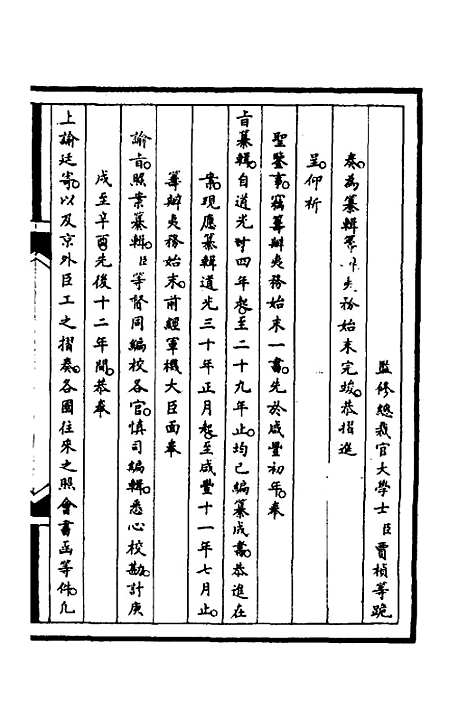 監修總裁官大學士臣賈楨等跪
奏。為纂輯籌辦夷務始末完竣。恭摺進
呈。仰祈
聖鑒事。竊籌辦夷務始末一書。先於咸豐初年。奉
旨纂輯。自道光十四年起。至二十九年止。均已編纂成書。恭進在
案。現應纂輯道光三十年正月起。至咸豐十一年七月止。
籌辦夷務始末。前經軍機大臣面奉
諭旨。照案纂輯。臣等督同編校各官。慎司編輯。悉心校勘。計庚
戌至辛酉。先後十二年間。恭奉
上諭廷寄。以及京外臣工之摺奏。各國往來之照會書函等件。凡